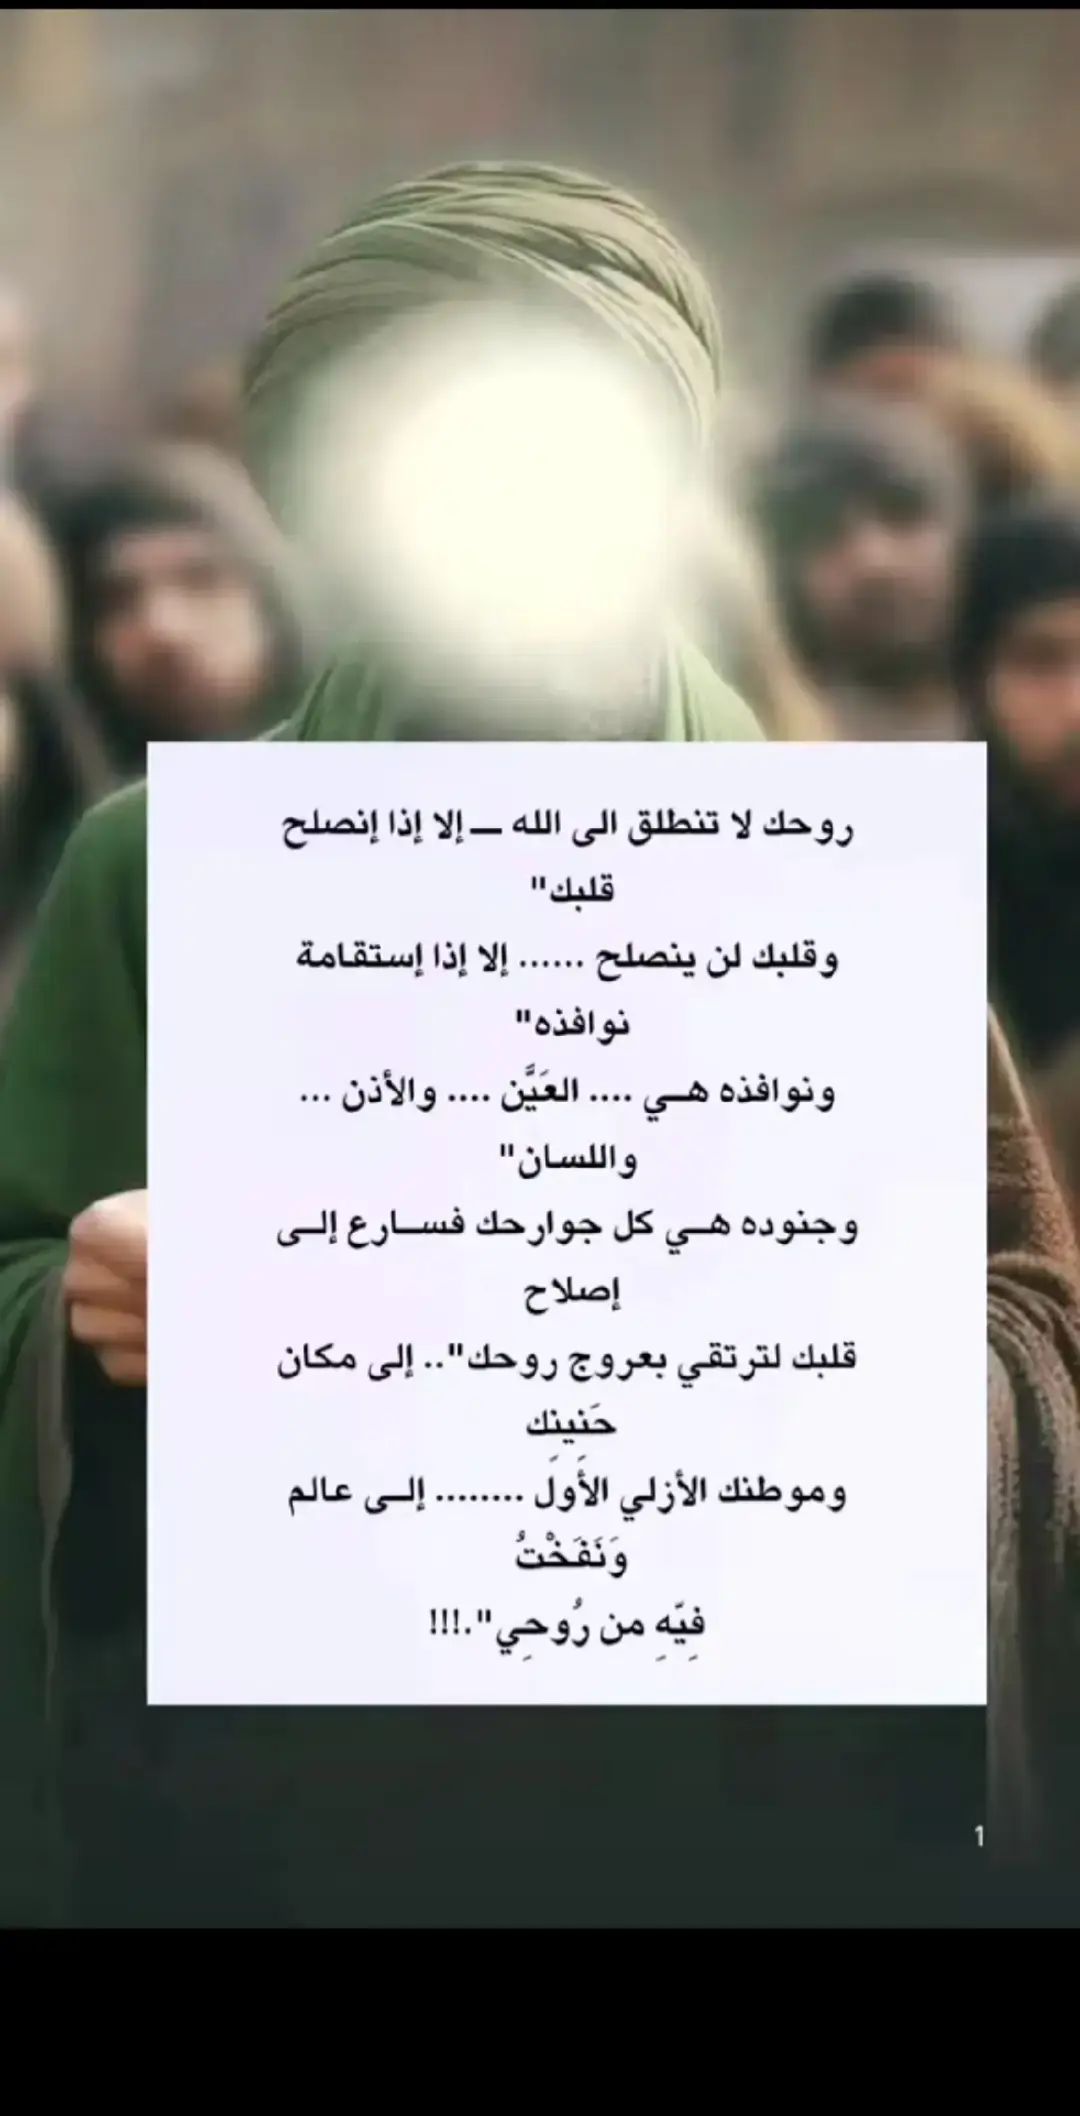 روحك لا تنطلق الى الله ــ إلا إذا إنصلح
قلبك"
وقلبك لن ينصلح ...... إلا إذا إستقامة
نوافذه"
ونوافذه هــي .... العَيَّن .... والأذن ...
واللسان"
وجنوده هــي كل جوارحك فســارع إلــى
إصلاح
قلبك لترتقي بعروج روحك".. إلى مكان
حَنِينِك
وموطنك الأزلي الأَولَ ........ إلــى عالم
وَنَفَخْتُ
فِيّهِ من رُوحِي".!!!
1